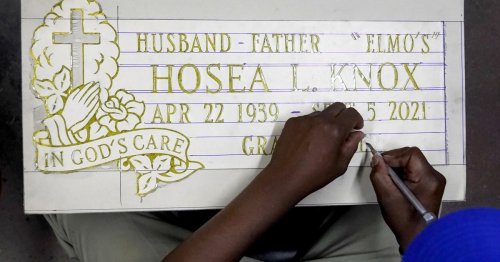 HUSBAND - FATHER "ELMO'S"
HOSEA L. KNOX
APR 22 1939 - 5, 2021
IN GOD'S CARE